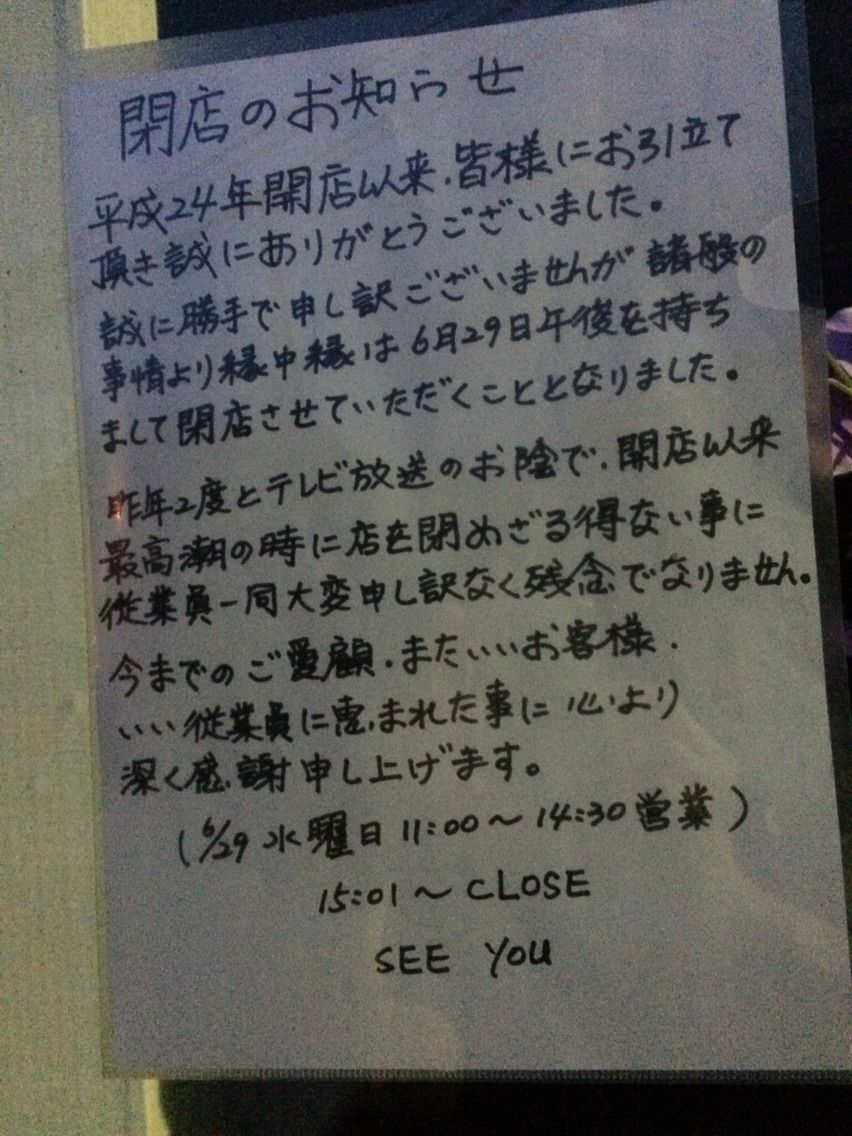 閉店のお知らせ
平成24年開店以来、皆様にお引立て
頂き誠にありがとうございました。
誠に勝手で申し訳ございませんが諸般の
事情より縁中縁は6月29日午後を持ち
まして閉店させていただくこととなりました。
昨年2度とテレビ放送のお陰で、開店以来
最高潮の時に店を閉めざる得ない事に
従業員一同大変申し訳なく残念でなりません。
今までのご愛顧、またいいお客様、
いい従業員に恵まれた事に心より
深く感謝申し上げます。
(6/29 水曜日 11:00～14:30営業)
15:01～CLOSE
SEE YOU